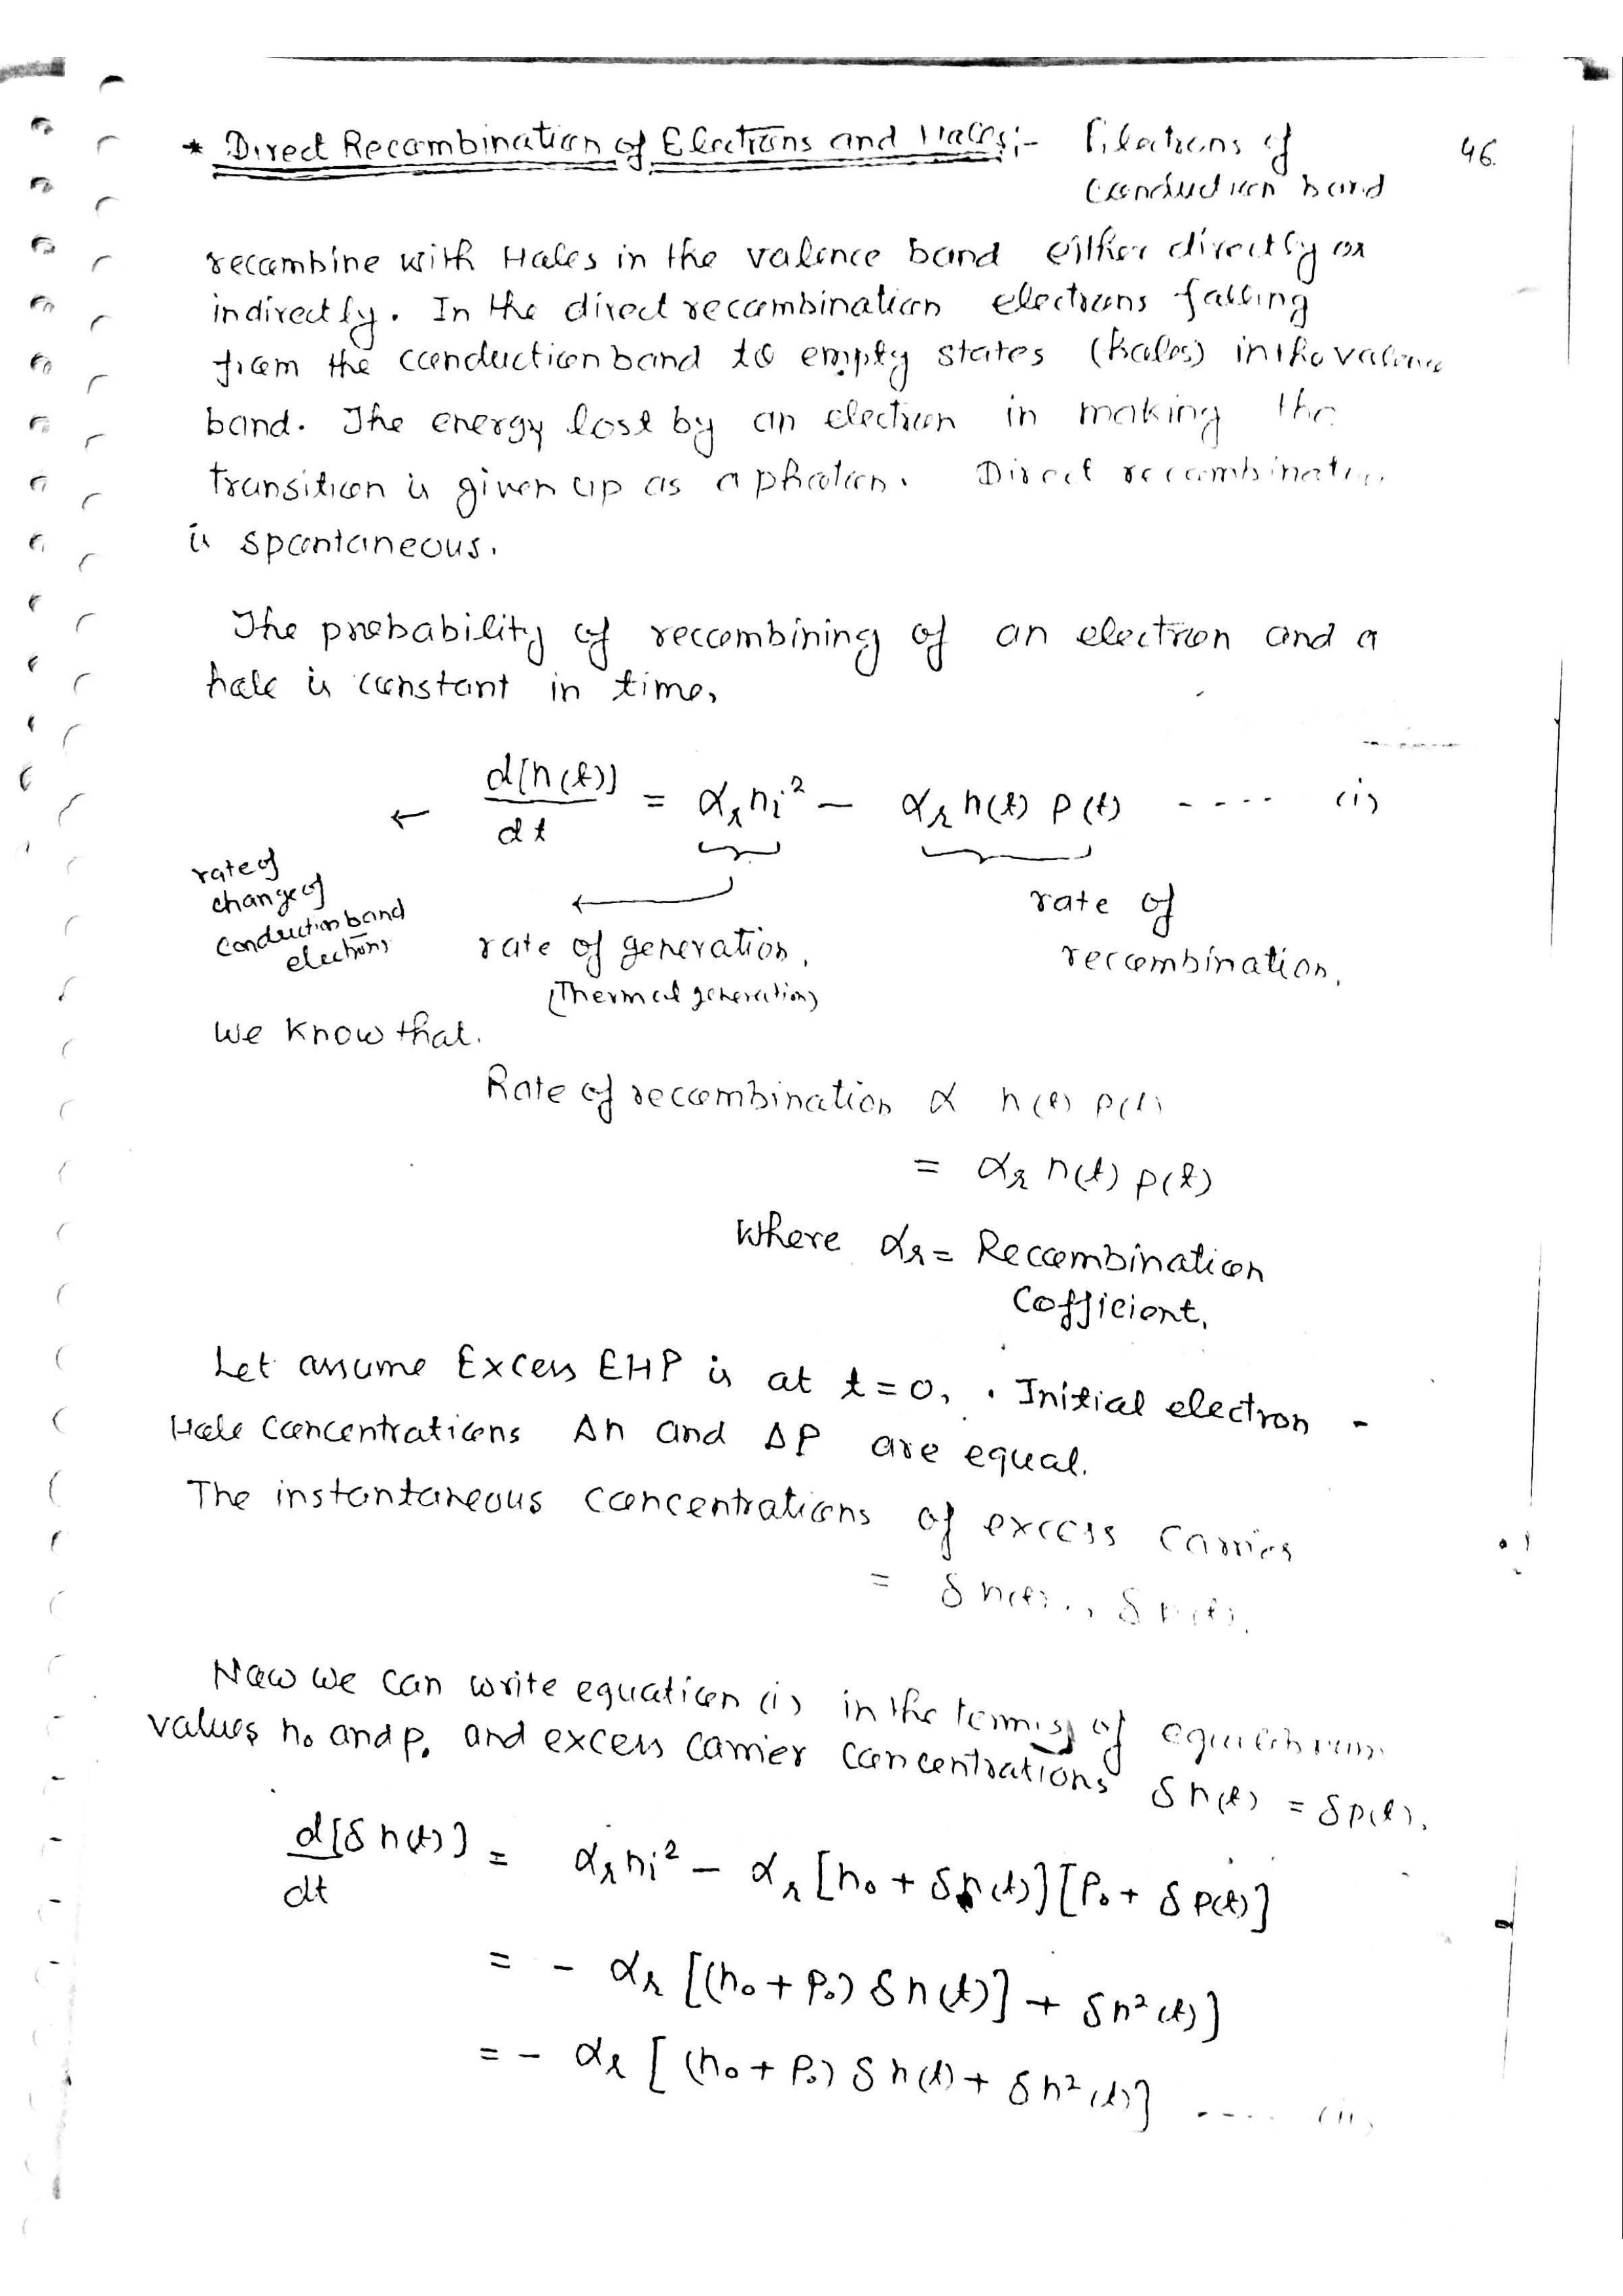 * Direct Recombination of Electrons and Holes:- Electrons of 46.
conduction band
recombine with Holes in the valence band either directly or
indirectly. In the direct recombination electrons falling
from the conduction band to empty states (holes) in the valence
band. The energy lost by an electron in making the
transition is given up as a photon. Direct recombination
is spontaneous.
The probability of reccombining of an electron and a
hole is constant in time,
← d[n(t)]/dt = αr ni² − αr n(t) p(t) ---- (i)
rate of
change of
conduction band
electrons
rate of generation,
(Thermal generation)
rate of
reccombination,
we know that.
Rate of reccombination ∝ n(t) p(t)
= αr n(t) p(t)
Where αr = Reccombination
Cofficient,
Let assume Excess EHP is at t=0, . Initial electron -
Hole Concentrations Δn and ΔP are equal.
The instantaneous concentrations of excess carries
= δn(t), δp(t).
Now we can write equation (i) in the terms of equilibrium
values n₀ and p₀ and excess carrier concentrations δn(t) = δp(t),
d[δn(t)]/dt = αr ni² − αr [n₀ + δn(t)][P₀ + δp(t)]
= − αr [(n₀ + P₀) δn(t)] + δn²(t)]
= − αr [(n₀ + P₀) δn(t) + δn²(t)] ---- (ii)